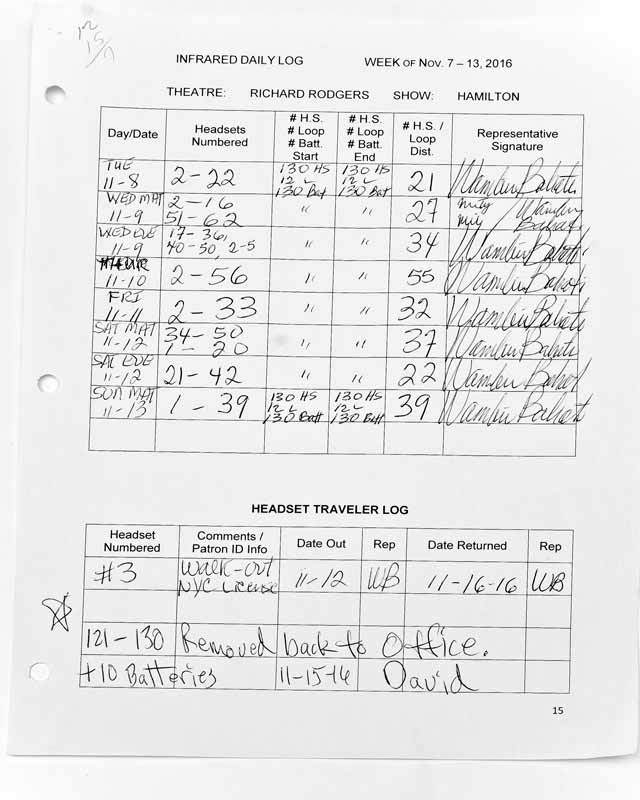 12
15/7
INFRARED DAILY LOG WEEK OF NOV. 7 – 13, 2016
THEATRE: RICHARD RODGERS SHOW: HAMILTON
Day/Date Headsets Numbered # H.S. # Loop # Batt. Start # H.S. # Loop # Batt. End # H.S. / Loop Dist. Representative Signature
TUE 11-8 2-22 130 HS 12 L 130 Bat 130 HS 12 L 130 Bat 21
WED MAT 11-9 2-16 51-62 " " 27
WED EVE 11-9 17-36, 40-50, 2-5 " " 34
11-10 2-56 " " 55
FRI 11-11 2-33 " " 32
SAT MAT 11-12 34-50 1-20 " " 37
SAT EVE 11-12 21-42 " " 22
SUN MAT 11-13 1-39 130 HS 12 L 130 Batt 130 HS 12 L 130 Batt 39
HEADSET TRAVELER LOG
Headset Numbered Comments / Patron ID Info Date Out Rep Date Returned Rep
#3 WALK-OUT NYC License 11-12 WB 11-16-16 WB
121-130 Removed back to office.
+10 Batteries 11-15-16 David
15